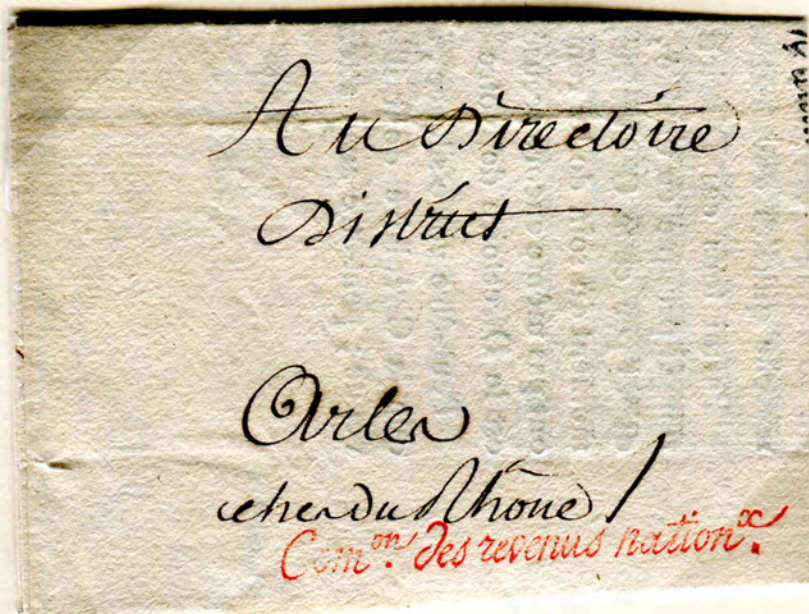 Au Directoire
District
Arles
ches du Rhône
Com.on des revenus nation.x